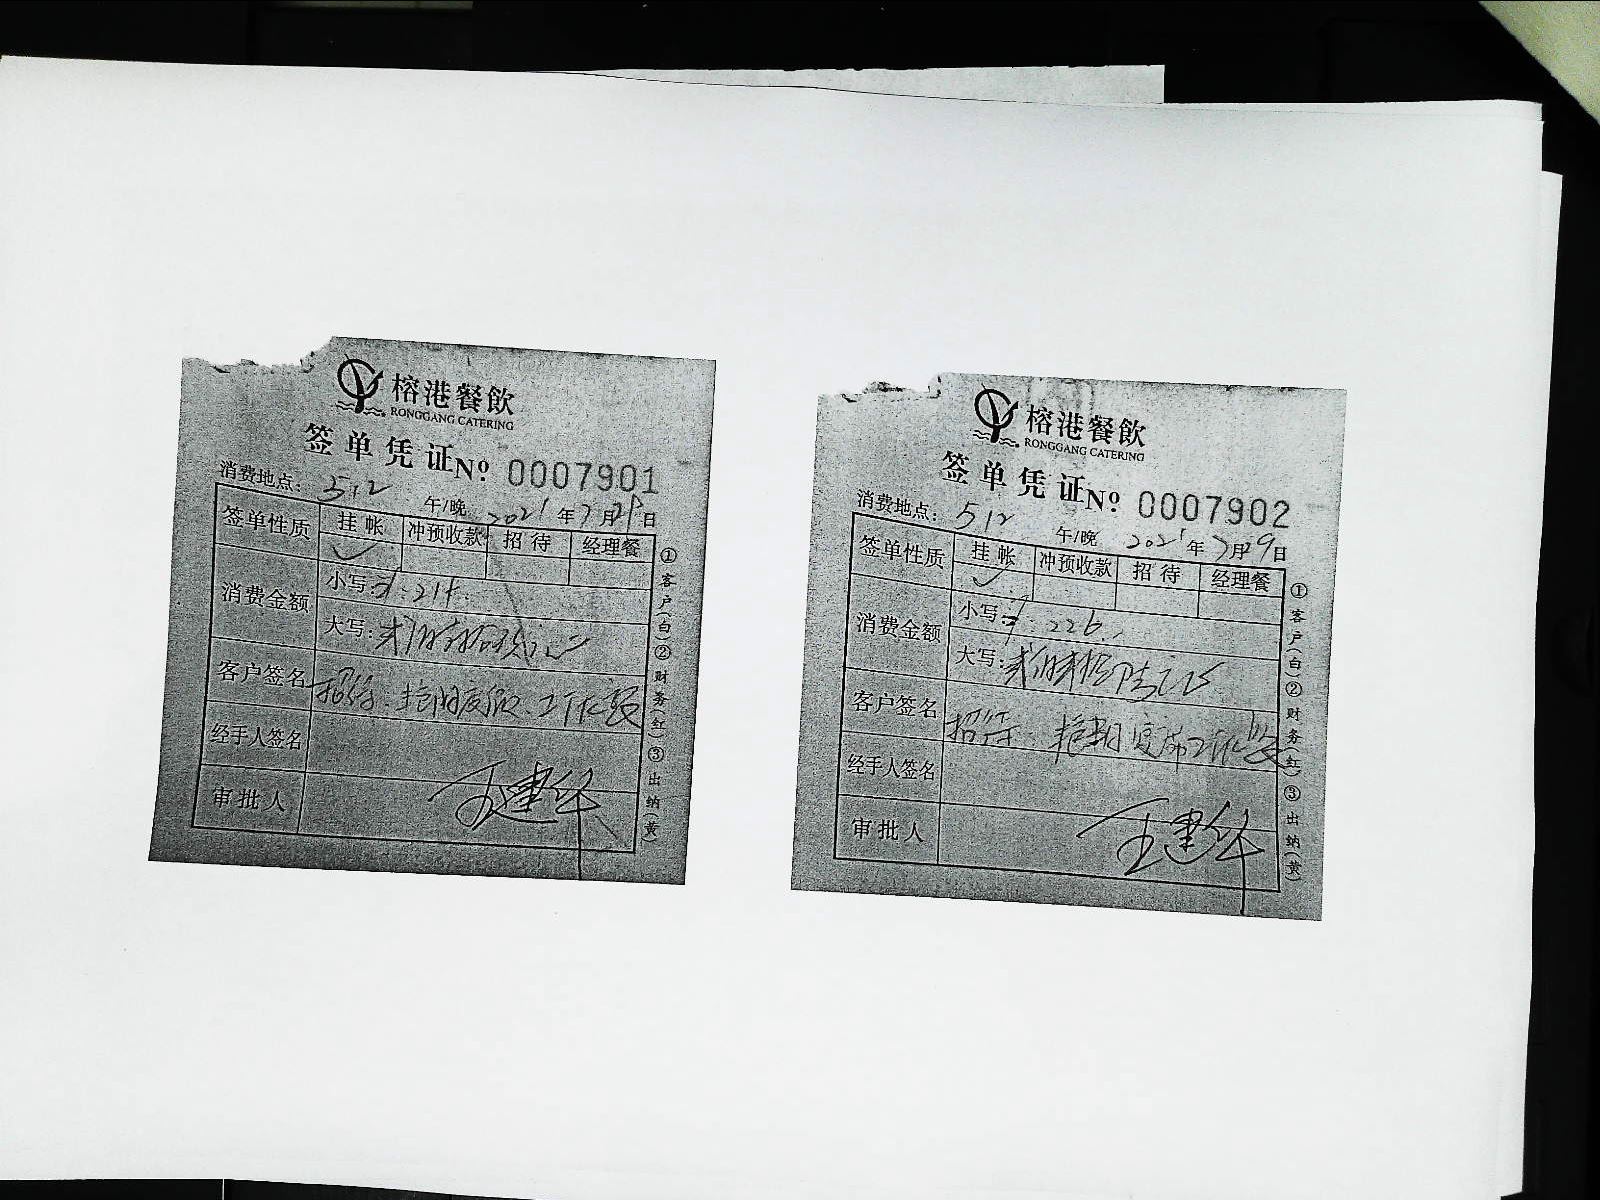 榕港餐飲
RONGGANG CATERING
签单凭证No 0007901
消费地点: 512 午/晚 2021年7月29日
签单性质 挂帐 冲预收款 招待 经理餐
✓
消费金额 小写: ¥:214.
大写:
客户签名 招待
经手人签名
审批人 王建华
①客户(白)②财务(红)③出纳(黄)
榕港餐飲
RONGGANG CATERING
签单凭证No 0007902
消费地点: 512 午/晚 2021年7月29日
签单性质 挂帐 冲预收款 招待 经理餐
✓
消费金额 小写: ¥:226.
大写:
客户签名 招待
经手人签名
审批人 王建华
①客户(白)②财务(红)③出纳(黄)